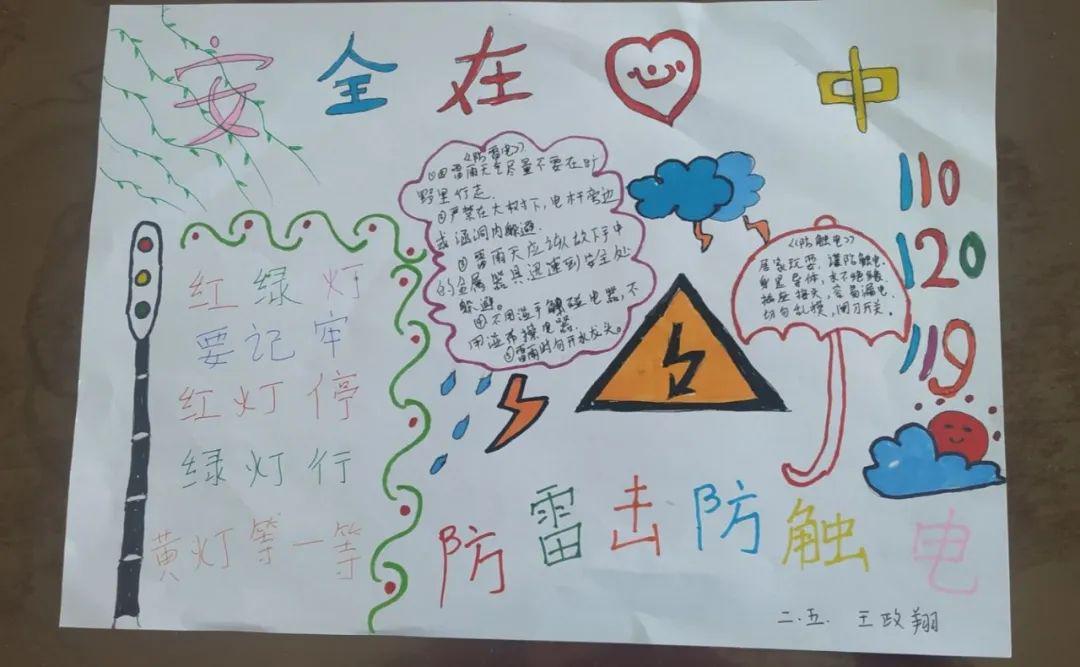 安全在心中
红绿灯
要记牢
红灯停
绿灯行
黄灯等一等
《防雷电》
①雷雨天气尽量不要在旷
野里行走.
②严禁在大树下,电杆旁边
或涵洞内躲避.
③雷雨天应该放下手中
的金属器具迅速到安全处
躲避。
④不用湿手触碰电器,不
用湿布擦电器.
⑤雷雨时勿开水龙头。
《防触电》
居家玩耍,谨防触电.
身是导体,水不绝缘.
插座接头,容易漏电.
切勿乱摸,闸刀开关.
110
120
119
防雷击防触电
二.五. 王政翔